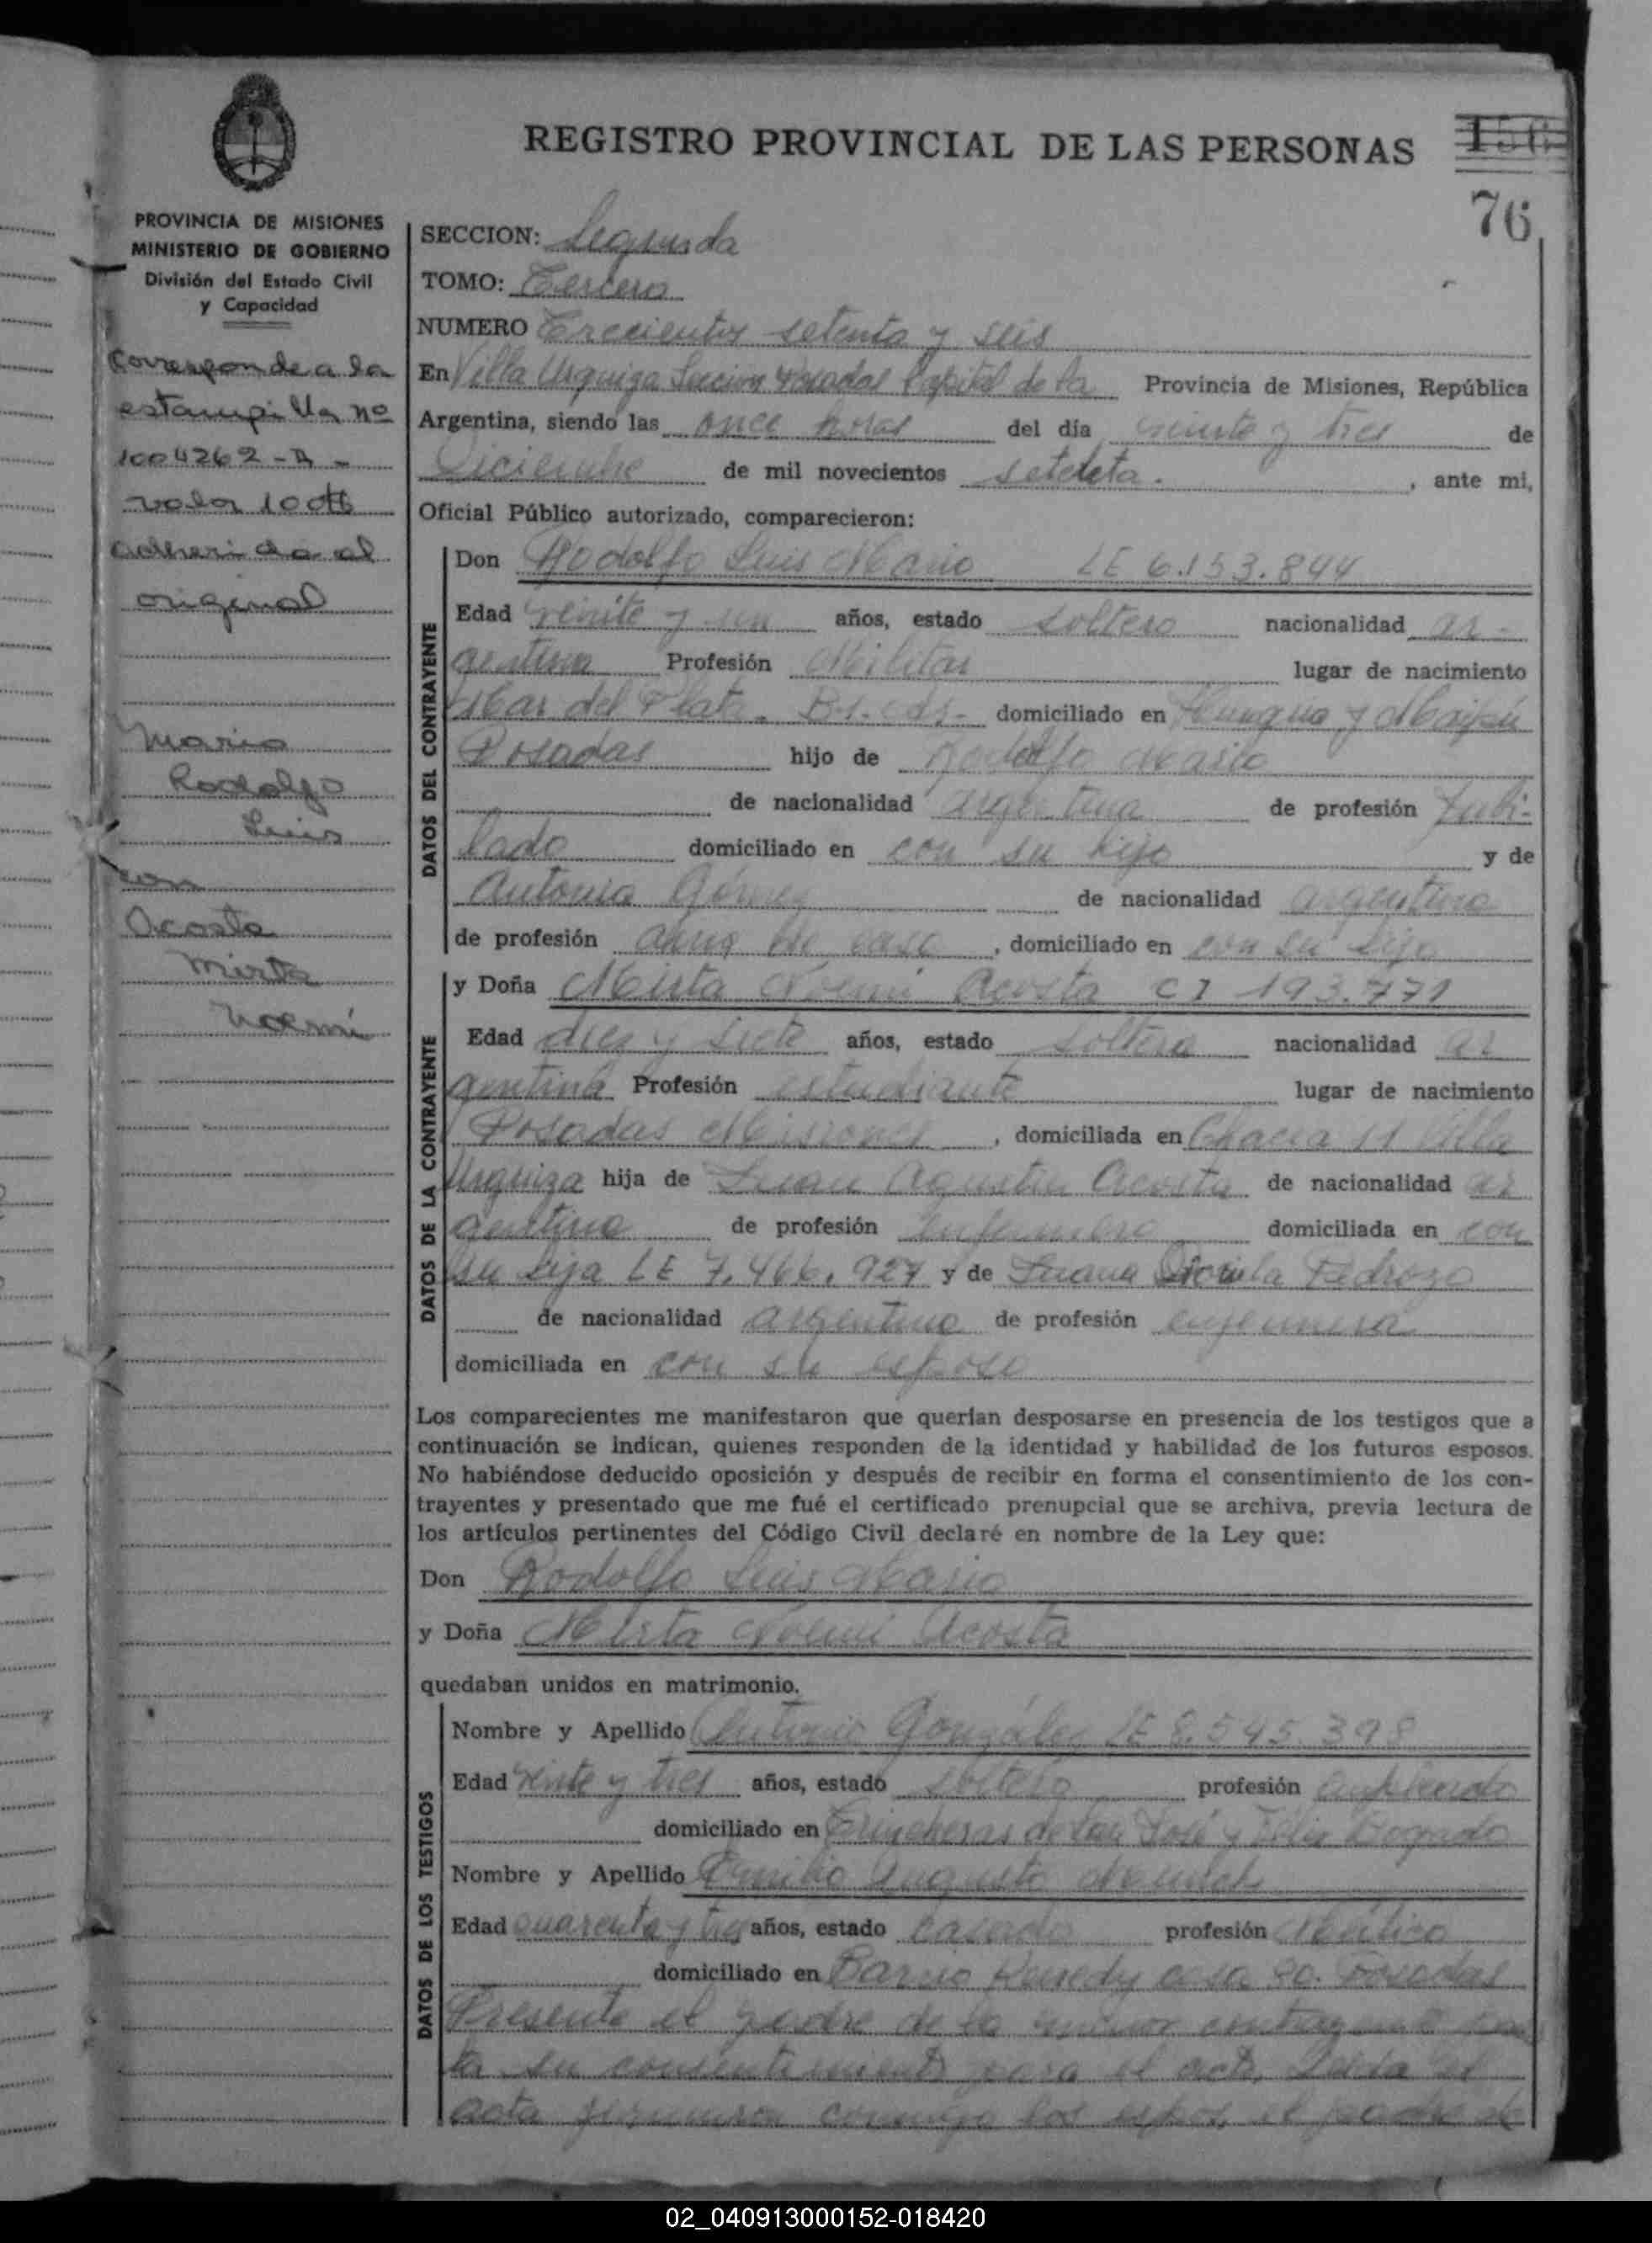 REGISTRO PROVINCIAL DE LAS PERSONAS
156
76
PROVINCIA DE MISIONES
MINISTERIO DE GOBIERNO
División del Estado Civil
y Capacidad
Corresponde a la
estampilla nº
1004262-A-
valor 10
adherida al
original
Mario
Rodolfo
Luis
con
Acosta
Mirta
Noemí
SECCION: Segunda
TOMO: Tercero
NUMERO Trecientos setenta y seis
En Villa Urquiza Seccion Posadas Capital de la Provincia de Misiones, República
Argentina, siendo las once horas del día veinte y tres de
Diciembre de mil novecientos , ante mi,
Oficial Público autorizado, comparecieron:
DATOS DEL CONTRAYENTE
Don Rodolfo Luis Mario LE 6.153.844
Edad veinte y un años, estado soltero nacionalidad ar-
gentina Profesión Militar lugar de nacimiento
Mar del Plata. Bs. As- domiciliado en y Maipú
Posadas hijo de Rodolfo Mario
de nacionalidad argentina de profesión Jubi-
lado domiciliado en con su hijo y de
Antonia Gómez de nacionalidad argentina
de profesión ama de casa, domiciliado en con su hijo
DATOS DE LA CONTRAYENTE
y Doña Mirta Noemí Acosta CI 193.771
Edad diez y siete años, estado soltera nacionalidad ar
gentina Profesión estudiante lugar de nacimiento
Posadas Misiones, domiciliada en Chacra 11 Villa
Urquiza hija de Juan Agustin Acosta de nacionalidad ar
gentina de profesión enfermero domiciliada en con
su hija LE 7.466.927 y de Juana Pedrozo
de nacionalidad argentina de profesión enfermera
domiciliada en con su esposo
Los comparecientes me manifestaron que querían desposarse en presencia de los testigos que a
continuación se indican, quienes responden de la identidad y habilidad de los futuros esposos.
No habiéndose deducido oposición y después de recibir en forma el consentimiento de los con-
trayentes y presentado que me fué el certificado prenupcial que se archiva, previa lectura de
los artículos pertinentes del Código Civil declaré en nombre de la Ley que:
Don Rodolfo Luis Mario
y Doña Mirta Noemí Acosta
quedaban unidos en matrimonio.
DATOS DE LOS TESTIGOS
Nombre y Apellido Antonio González LE 8.545.398
Edad veinte y tres años, estado soltero profesión empleado
domiciliado en Trincheras de San José y Félix Bogado
Nombre y Apellido Emilio Augusto
Edad cuarenta y tres años, estado casado profesión
domiciliado en Barrio Kenedy casa 20. Posadas
Presente el padre de la menor contrayente
su consentimiento para el acto. Leída el
acta conmigo los espos, el padre de
02_040913000152-018420